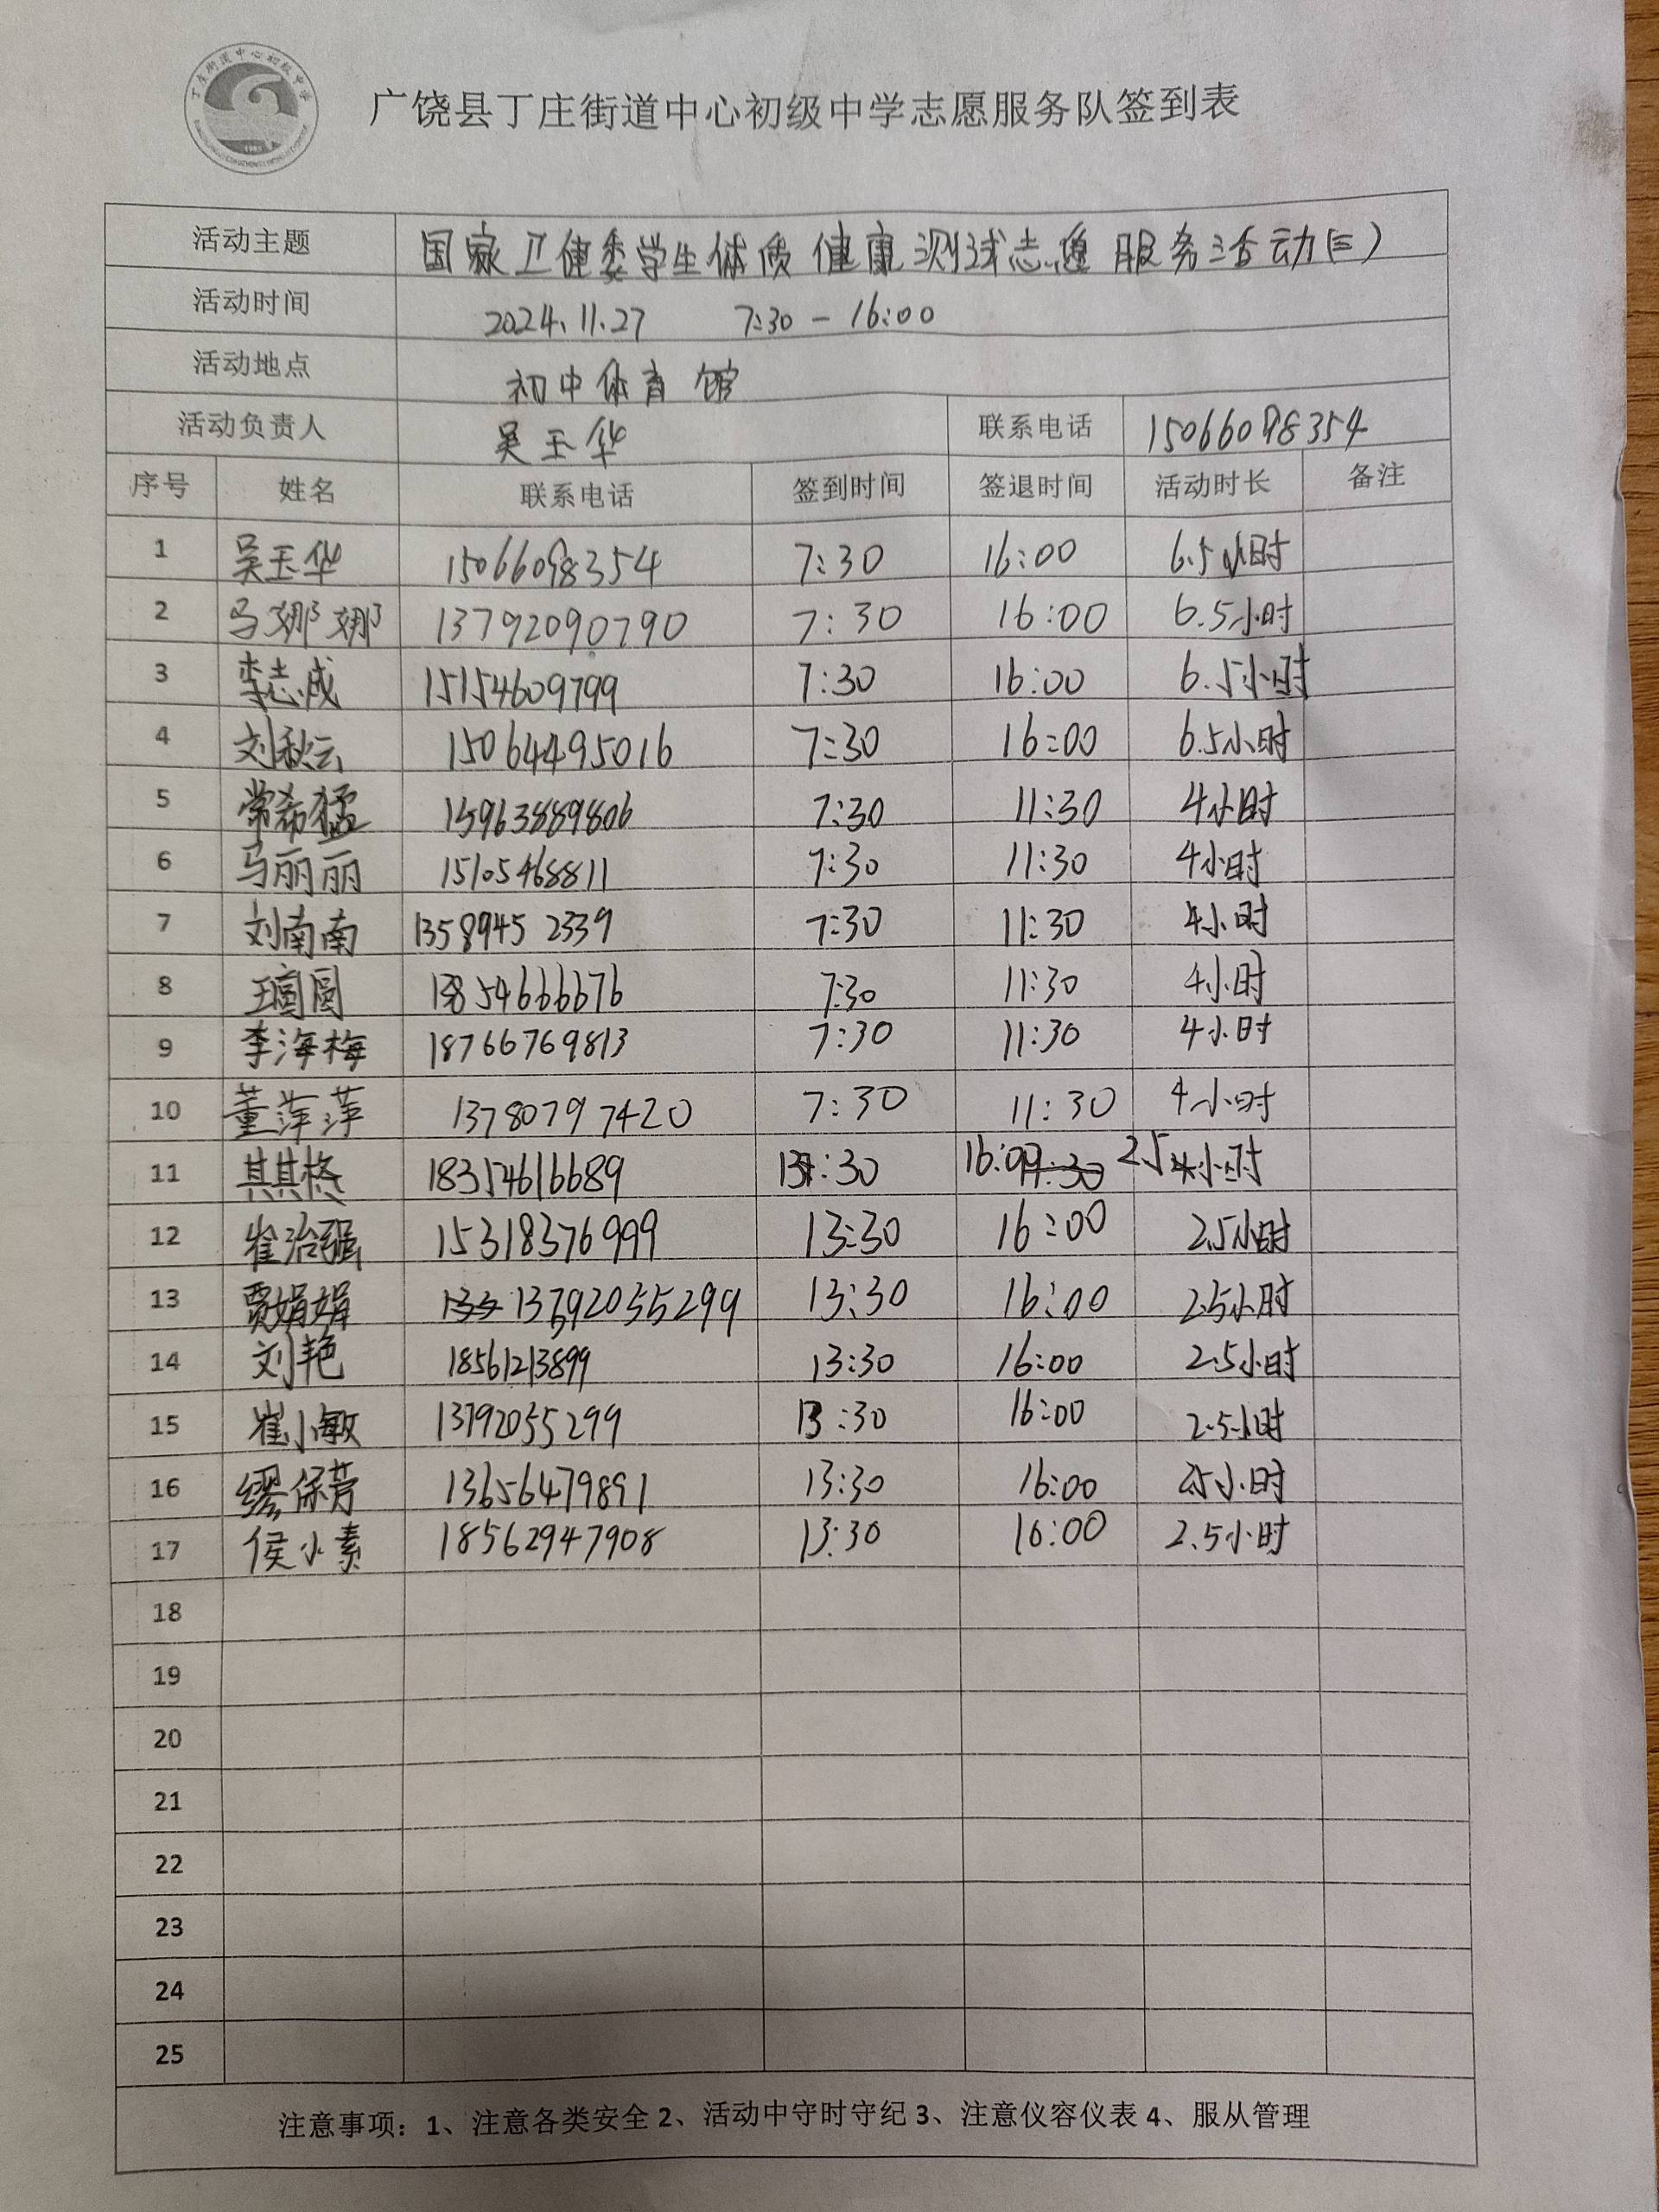 丁庄街道中心初级中学
1985
广饶县丁庄街道中心初级中学志愿服务队签到表
活动主题 国家卫健委学生体质健康测试志愿服务活动(三)
活动时间 2024.11.27 7:30-16:00
活动地点 初中体育馆
活动负责人 吴玉华 联系电话 15066098354
序号 姓名 联系电话 签到时间 签退时间 活动时长 备注
1 吴玉华 15066098354 7:30 16:00 6.5小时
2 马娜娜 13792090790 7:30 16:00 6.5小时
3 李志成 15154609799 7:30 16:00 6.5小时
4 刘秋云 15064495016 7:30 16:00 6.5小时
5 常希猛 15963889806 7:30 11:30 4小时
6 马丽丽 15105468811 7:30 11:30 4小时
7 刘南南 13589452339 7:30 11:30 4小时
8 王圆圆 13854666676 7:30 11:30 4小时
9 李海梅 18766769813 7:30 11:30 4小时
10 董萍萍 13780797420 7:30 11:30 4小时
11 其其格 18354616689 13:30 16:00 2.5小时
12 崔治强 15318376999 13:30 16:00 2.5小时
13 贾娟娟 13:30 16:00 2.5小时
14 刘艳 18561213899 13:30 16:00 2.5小时
15 崔小敏 13792055299 13:30 16:00 2.5小时
16 缪保芳 13656479891 13:30 16:00 2.5小时
17 侯小素 18562947908 13:30 16:00 2.5小时
18
19
20
21
22
23
24
25
注意事项：1、注意各类安全 2、活动中守时守纪 3、注意仪容仪表 4、服从管理